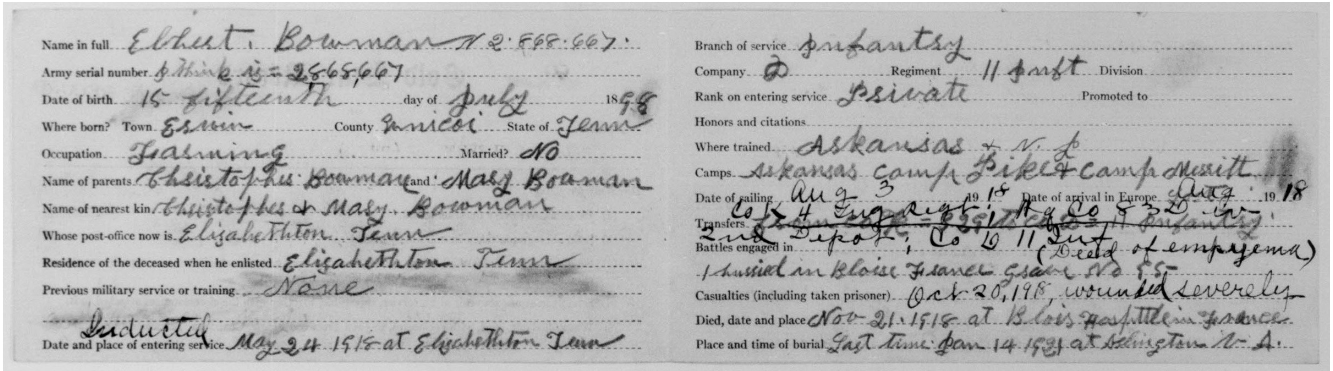 Name in full Elbert. Bowman N 2.868.667.
Army serial number I think is = 2868,667
Date of birth 15 fifteenth day of July 1898
Where born? Town Erwin County Unicoi State of Tenn
Occupation Farming Married? No
Name of parents Christopher Bowman and Mary Bowman
Name of nearest kin Christopher & Mary Bowman
Whose post-office now is Elizabethton Tenn
Residence of the deceased when he enlisted Elizabethton Tenn
Previous military service or training None
Inducted
Date and place of entering service May 24 1918 at Elizabethton Tenn
Branch of service Infantry
Company D Regiment 11 Inft Division
Rank on entering service Private Promoted to
Honors and citations
Where trained Arkansas & N. J
Camps Arkansas Camp Pike & Camp Merritt
Date of sailing Aug 3 1918 Date of arrival in Europe Aug 1918
Co K 4 Regt; Hq Co
Transfers Infantry
2nd Depot; Co D 11 Inf
Battles engaged in (Died of empyema)
burried in Bloise France Grave No 95
Casualties (including taken prisoner) Oct 20, 1918, wounded severely
Died, date and place Nov 21. 1918 at Blois Hospittle in France
Place and time of burial Last time Jan 14 1921 at Arlington V A.